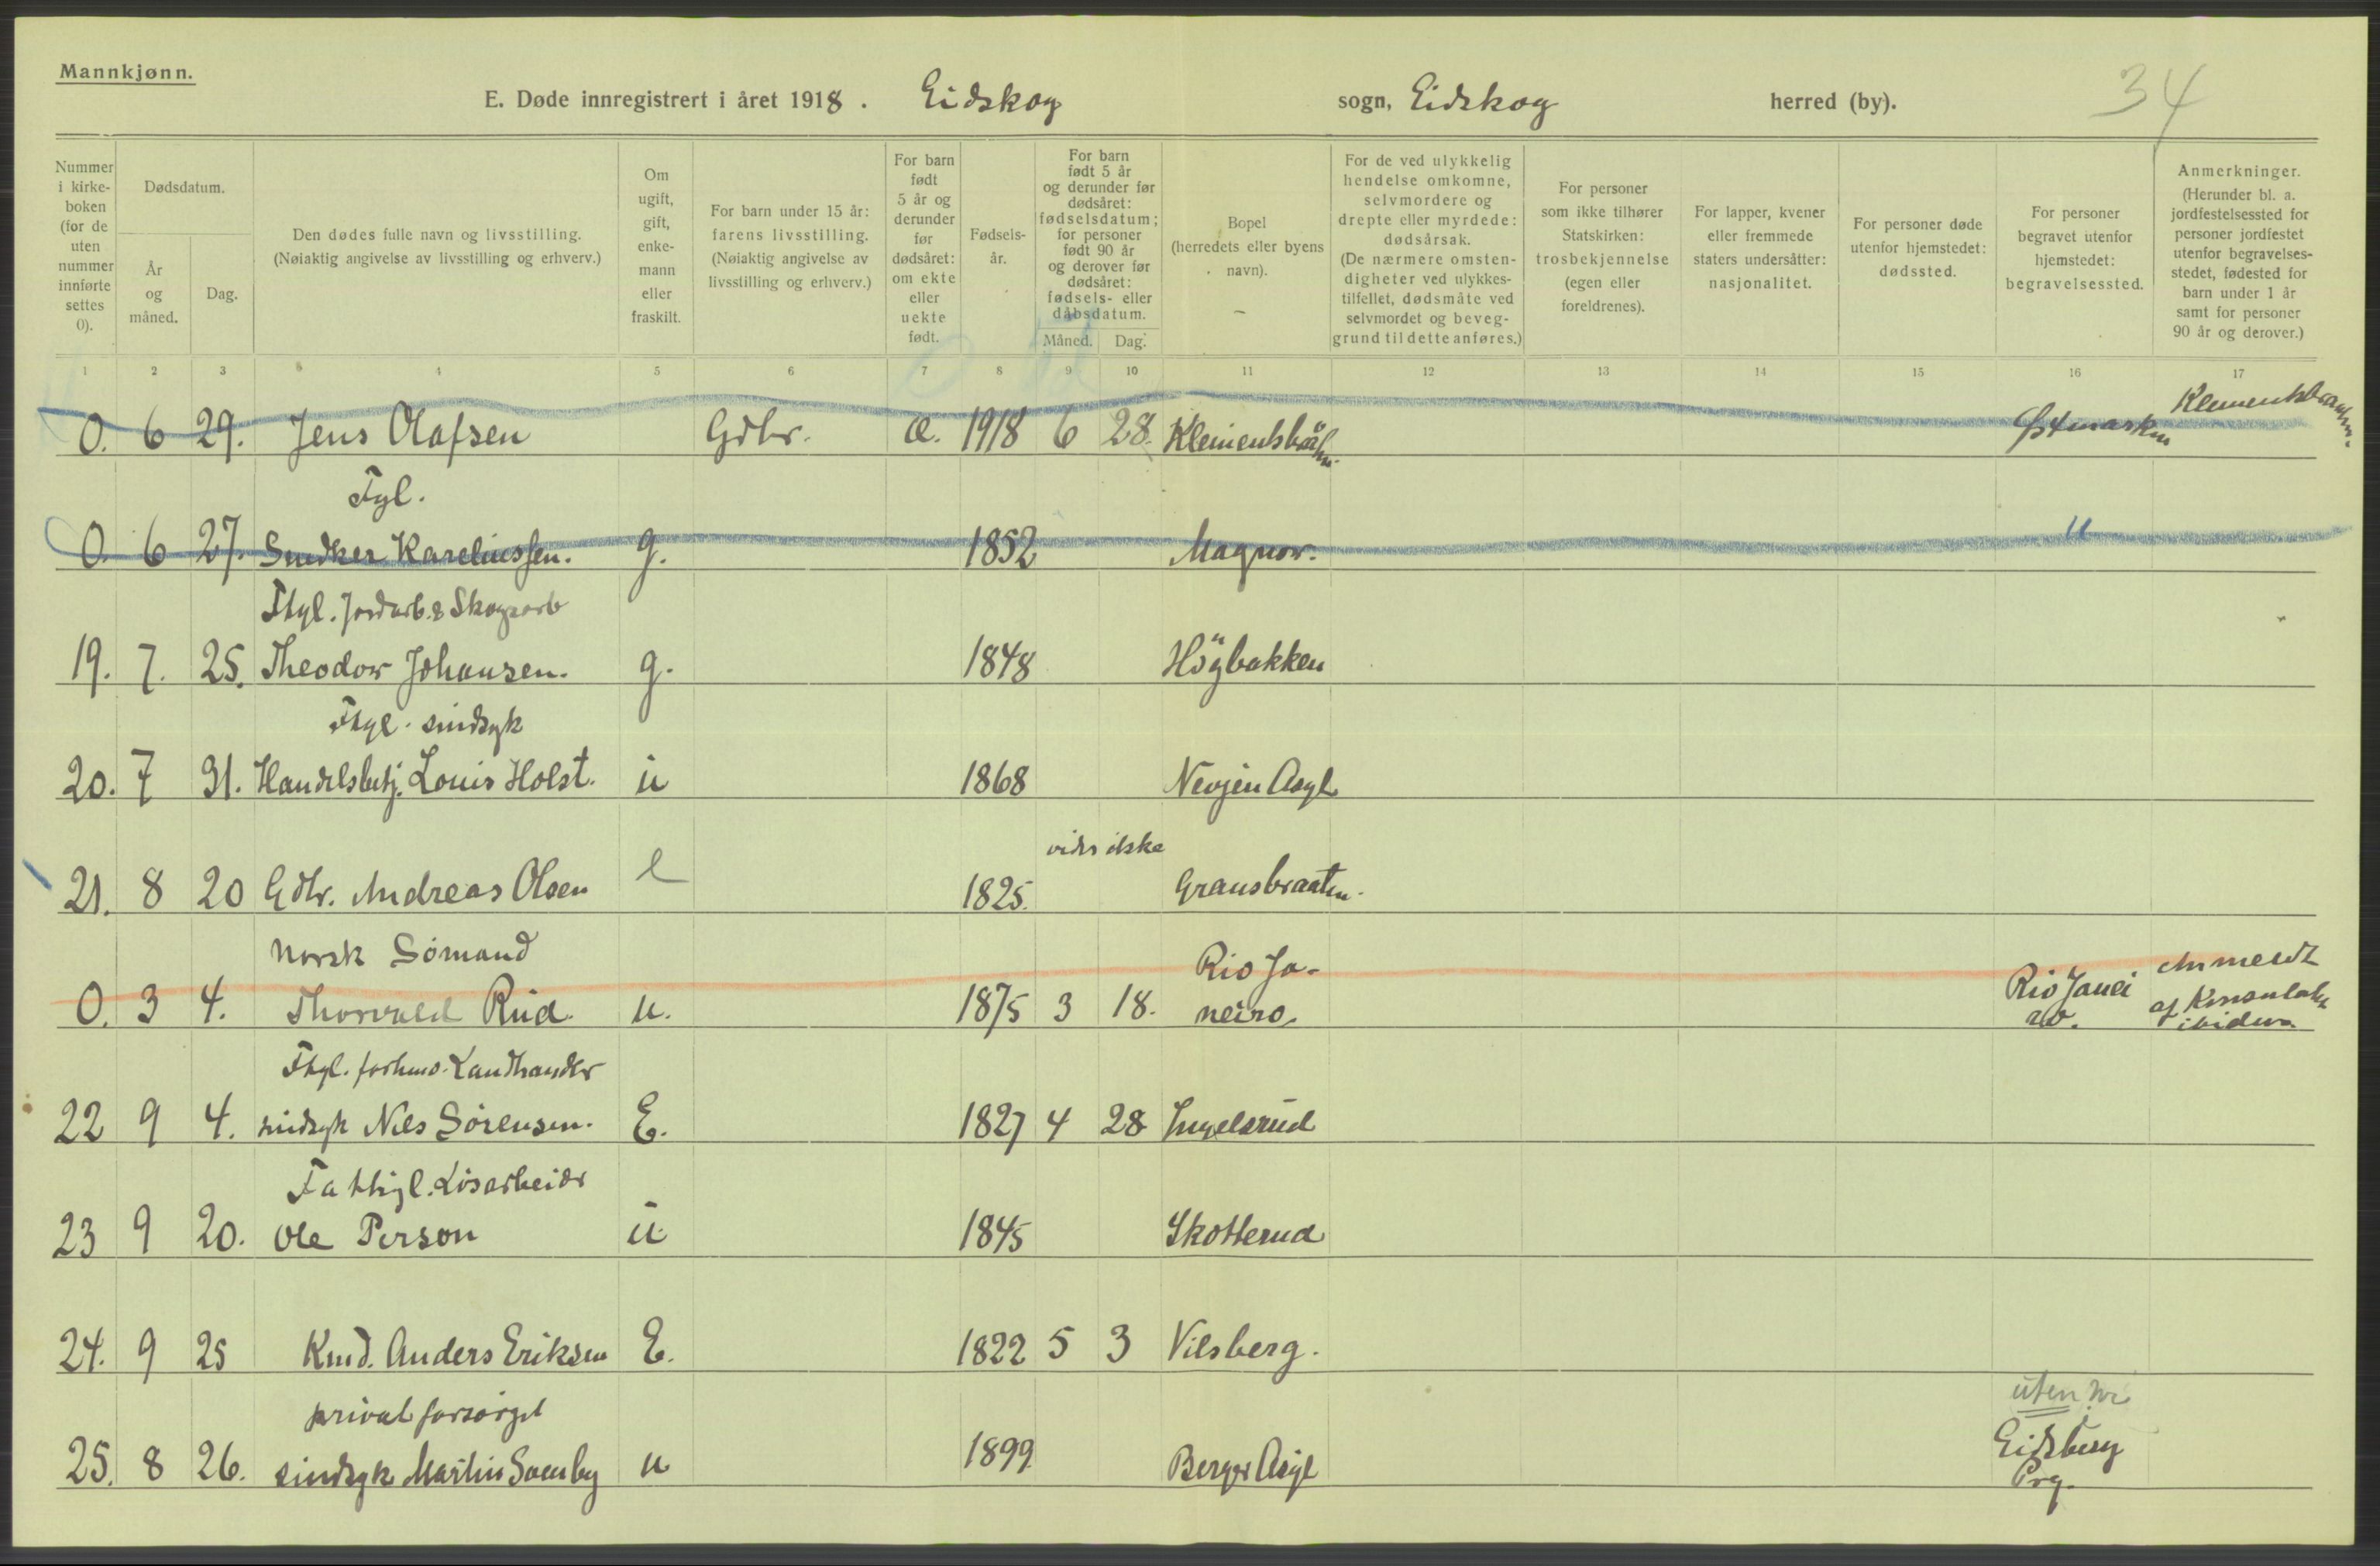 Mannkjønn.
E. Døde innregistrert i året 1918. Eidskog sogn, Eidskog herred (by). 34
Nummer i kirke-boken (for de uten nummer innførte settes 0).
Dødsdatum.
År og måned.
Dag.
Den dødes fulle navn og livsstilling. (Nøiaktig angivelse av livsstilling og erhverv.)
Om ugift, gift, enke-mann eller fraskilt.
For barn under 15 år: farens livsstilling. (Nøiaktig angivelse av livsstilling og erhverv.)
For barn født 5 år og derunder før dødsåret: om ekte eller uekte født.
Fødsels-år.
For barn født 5 år og derunder før dødsåret: fødselsdatum; for personer født 90 år og derover før dødsåret: fødsels- eller dåbsdatum.
Måned. Dag.
Bopel (herredets eller byens navn).
For de ved ulykkelig hendelse omkomne, selvmordere og drepte eller myrdede: dødsårsak. (De nærmere omsten-digheter ved ulykkes-tilfellet, dødsmåte ved selvmordet og beveg-grund til dette anføres.)
For personer som ikke tilhører Statskirken: trosbekjennelse (egen eller foreldrenes).
For lapper, kvener eller fremmede staters undersåtter: nasjonalitet.
For personer døde utenfor hjemstedet: dødssted.
For personer begravet utenfor hjemstedet: begravelsessted.
Anmerkninger. (Herunder bl. a. jordfestelsessted for personer jordfestet utenfor begravelses-stedet, fødested for barn under 1 år samt for personer 90 år og derover.)
1 2 3 4 5 6 7 8 9 10 11 12 13 14 15 16 17
0. 6 29. Jens Olafsen Gdbr. æ. 1918 6 28. Østmarken
Fgl.
0. 6 27. Snedker Kareliussen. g. 1852 Magnor. "
Fhgl. Jordarb. & Skogsarb
19. 7. 25. Theodor Johansen. g. 1848 Högbakken
Fhgl. sindsyk
20. 7 31. Handelsbetj. Louis Holst. u 1868 Asyl
vides ikke
21. 8 20 Gdbr. Andreas Olsen e 1825. Gransbraaten.
Norsk Sömand
0. 3 4. Thorvald Rud. u. 1875 3 18. Rio Ja-neiro. Rio Janeiro. Anmeldt af Konsulatet ibidem
Fhgl. forhenv. Landhandler
22 9 4. sindsyk Nils Sörensen. E. 1827 4 28 Ingelsrud
Fattigl. Lösarbeider
23 9 20. Ole Person u. 1845 Skotterud
24. 9 25 Kmd. Anders Eriksen E. 1822 5 3 Vilsberg.
privat forsörget
uten nr
25. 8 26. sindsyk Martin u 1899 Berger Asyl Eidsberg Prg.